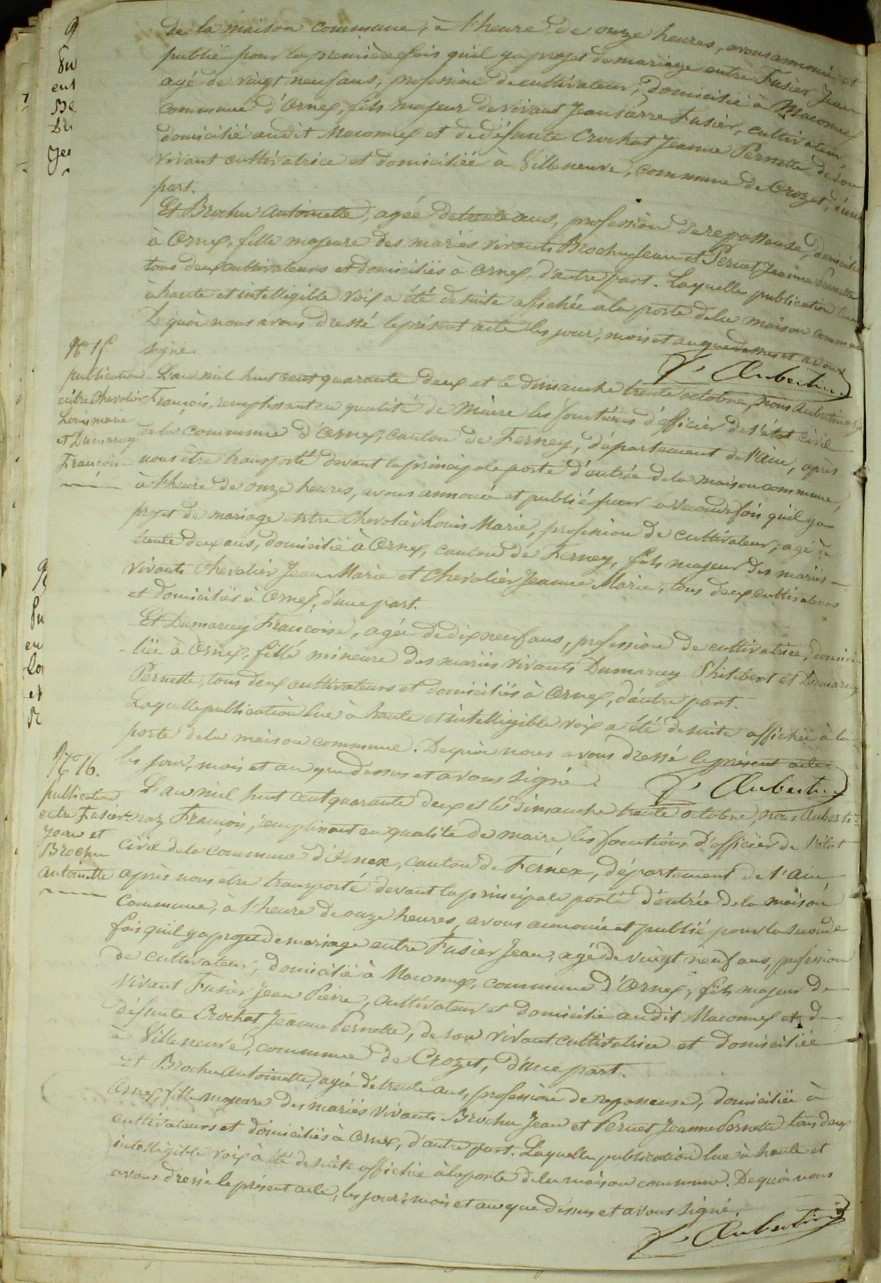 de la maison commune, à l'heure de onze heures, avons annoncé et
publié pour la première fois qu'il y a projet de mariage entre Fusier Jean
agé de vingt neuf ans, profession de cultivateur, domicilié à Maconnex
commune d'Ornex, fils majeur de vivant Jean Pierre Fusier, cultivateur,
domicilié audit Maconnex et de défunte Crochat Jeanne Pernette de son
vivant cultivatrice et domiciliée à Villeneuve, commune de Crozet, d'une
part.
Et Brochu Antoinette, agée de trente ans, profession de repasseuse, domiciliée
à Ornex, fille majeure des mariés vivants Brochu Jean et Perret Jeanne Pernette
tous deux cultivateurs et domiciliés à Ornex, d'autre part. Laquelle publication lue
à haute et intelligible voix a été de suite affichée à la porte de la maison commune
De quoi nous avons dressé le présent acte les jour, mois et an que dessus et avons
signé.
F. Aubertin
No 15
publication
entre Chevalier
Louis Marie
et Dumarcey
Françoise
L'an mil huit cent quarante deux et le dimanche trente octobre, nous Aubertin
François, remplissant en qualité de Maire les fonctions d'officier de l'état civil
de la commune d'Ornex, canton de Ferney, département de l'Ain, après
nous etre transporté devant la principale porte d'entrée de la maison commune,
à l'heure de onze heures, avons annoncé et publié pour la seconde fois qu'il y a
projet de mariage entre Chevalier Louis Marie, profession de cultivateur, agé de
trente deux ans, domicilié à Ornex, canton de Ferney, fils majeur des mariés
vivants Chevalier Jean Marie et Chevalier Jeanne Marie, tous deux cultivateurs
et domiciliés à Ornex, d'une part.
Et Dumarcey Françoise, agée de dix neuf ans, profession de cultivatrice, domici-
-liée à Ornex, fille mineure des mariés vivants Dumarcey Philibert et Dumarcey
Pernette, tous deux cultivateurs et domiciliés à Ornex, d'autre part.
Laquelle publication lue à haute et intelligible voix a été de suite affichée à la
porte de la maison commune. De quoi nous avons dressé le présent acte
les jour, mois et an que dessus et avons signé.
F. Aubertin
No 16.
publication
entre Fusier
Jean et
Brochu
Antoinette
L'an mil huit cent quarante deux et le dimanche trente octobre, nous Auberti-
François, remplissant en qualité de maire les fonctions d'officier de l'état
civil de la commune d'Ornex, canton de Fernex, département de l'Ain
après nous etre transporté devant la principale porte d'entrée de la maison
commune, à l'heure de onze heures, avons annoncé et publié pour la seconde
fois qu'il y a projet de mariage entre Fusier Jean, agé de vingt neuf ans, profession
de cultivateur, domicilié à Maconnex, commune d'Ornex, fils majeur de
vivant Fusier Jean Pierre, cultivateur et domicilié audit Maconnex et de
défunte Crochat Jeanne Pernette, de son vivant cultivatrice et domiciliée
à Villeneuve, commune de Crozet, d'une part.
et Brochu Antoinette, agée de trente ans, profession de repasseuse, domiciliée à
Ornex, fille majeure des mariés vivants Brochu Jean et Perret Jeanne Pernette tous deux
cultivateurs et domiciliés à Ornex, d'autre part. Laquelle publication lue à haute et
intelligible voix a été de suite affichée à la porte de la maison commune. De quoi nous
avons dressé le présent acte, les jour, mois et an que dessus et avons signé.
F. Aubertin